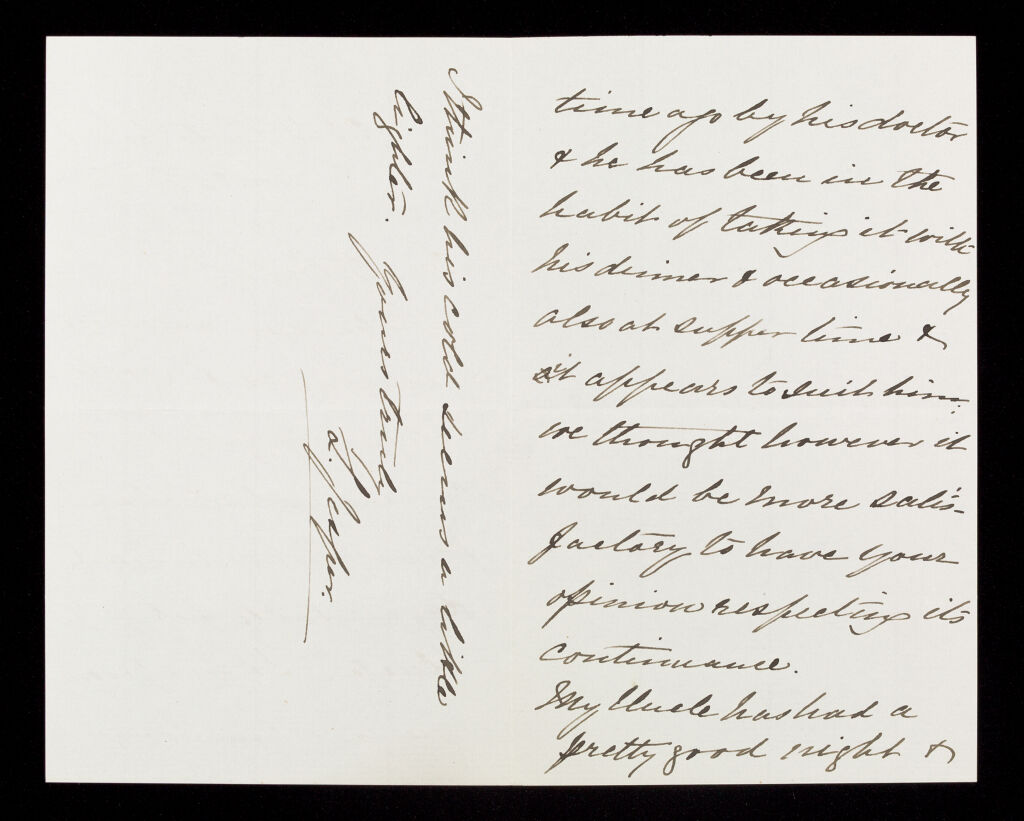 time ago by his doctor
& he has been in the
habit of taking it with
his dinner & occasionally
also at supper time &
it appears to suit him.
we thought however it
would be more satis-
factory to have your
opinion respecting its
continuance.
My Uncle has had a
pretty good night &
I think his cold seems a little
lighter.
Yours truly
L. Jesper.